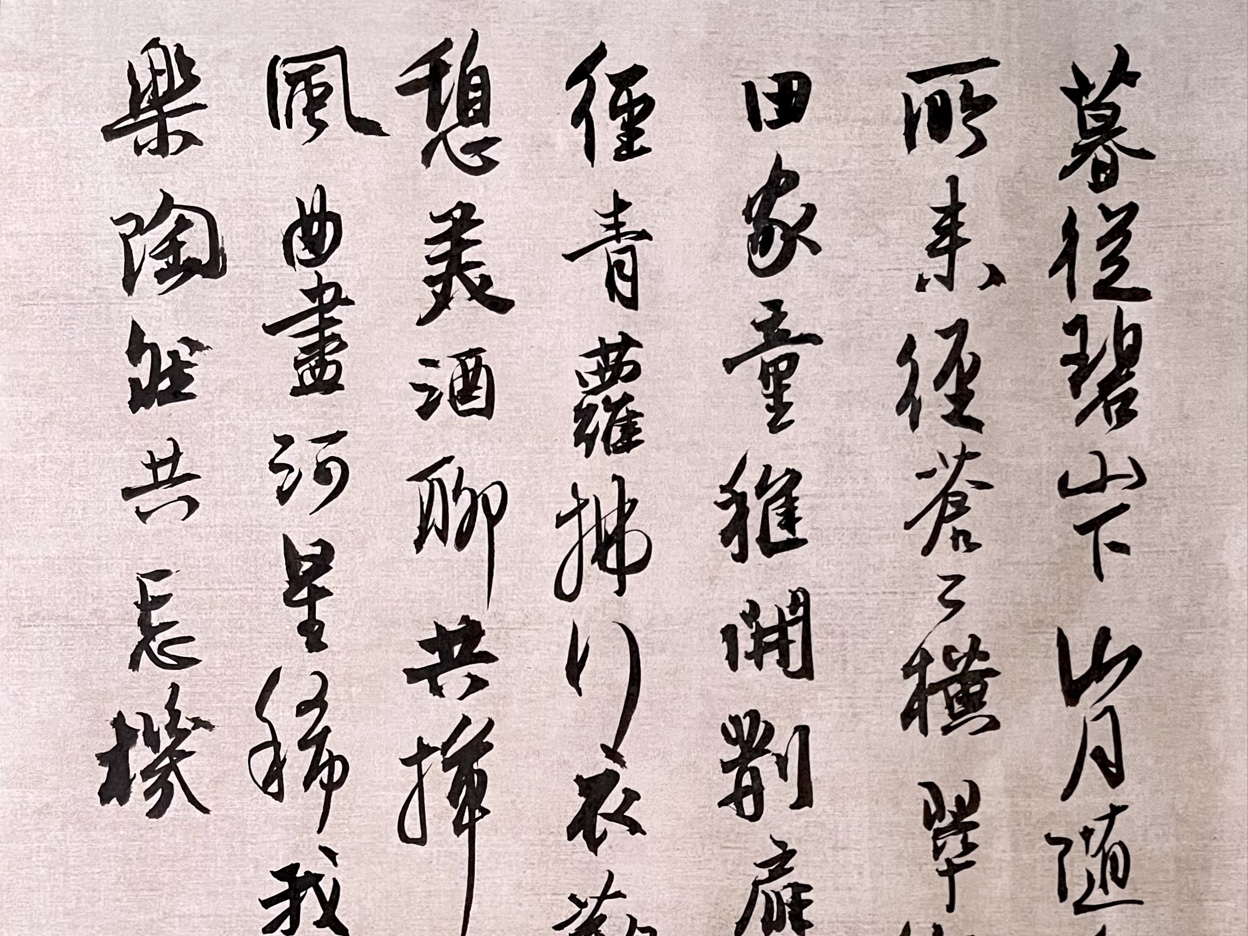 暮從碧山下山月隨
所来徑蒼〻橫翠
田家童稚開荊扉
徑青蘿拂行衣
憩美酒聊共揮
風曲盡河星稀我
樂陶然共忘機